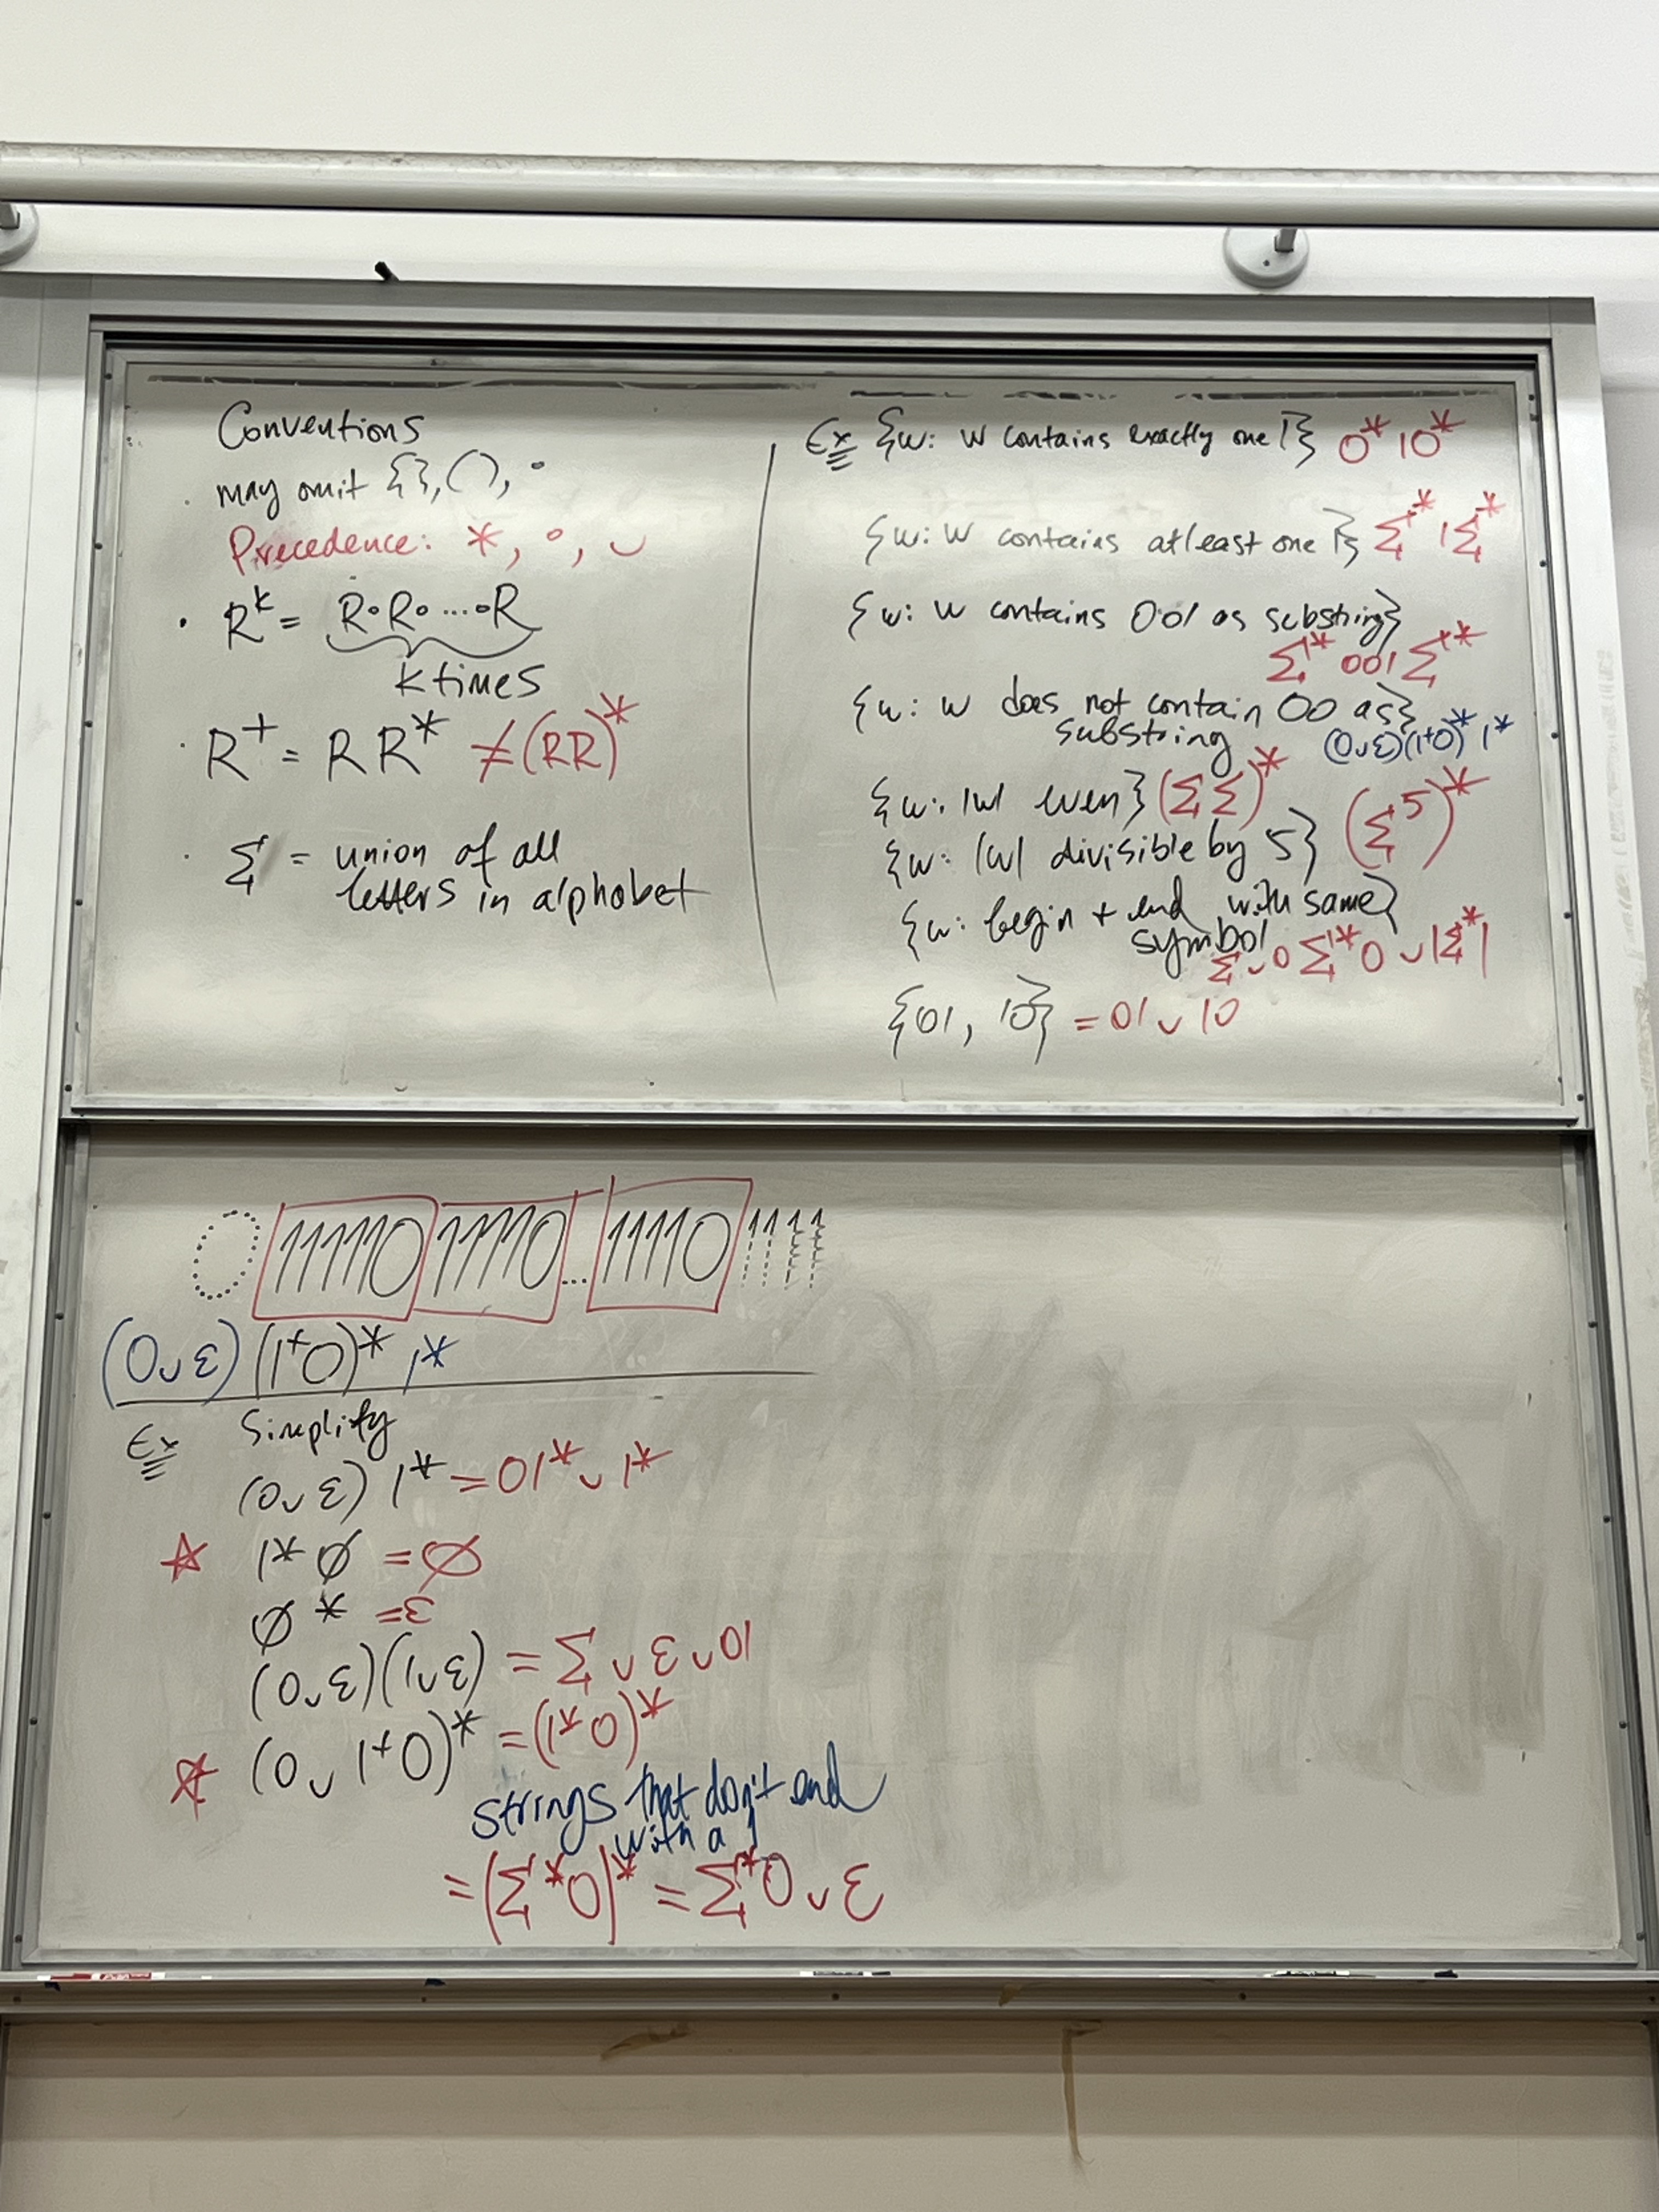 Conventions
· may omit {}, (), ∘
Precedence: *, ∘, ∪
· Rᵏ = R∘R∘....∘R
k times
· R⁺ = R R* ≠ (RR)*
· Σ = union of all
letters in alphabet
Ex {w: w contains exactly one 1} 0*10*
{w: w contains at least one 1} Σ*1Σ*
{w: w contains 001 as substring}
Σ*001Σ*
{w: w does not contain 00 as}
substring (0∪ε)(1⁺0)*1*
{w: |w| even} (ΣΣ)*
{w: |w| divisible by 5} (Σ⁵)*
{w: begin + end with same}
symbol
Σ∪0Σ*0∪1Σ*1
{01, 10} = 01∪10
0 111110 11110 ... 11110 1111
(0∪ε)(1⁺0)*1*
Ex Simplify
(0∪ε)1* = 01*∪1*
☆ 1*∅ = ∅
∅* = ε
(0∪ε)(1∪ε) = Σ∪ε∪01
☆ (0∪1⁺0)* = (1*0)*
strings that don't end
with a 1
= (Σ*0)* = Σ*0∪ε